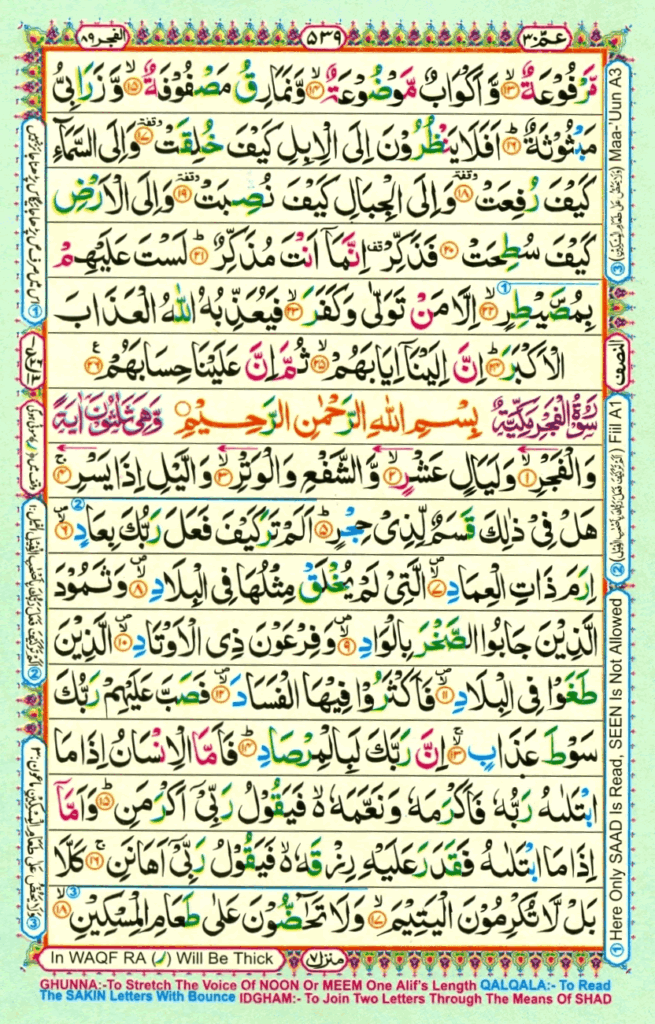 عمّ ۳۰
۵۳۹
الفجر ۸۹
مَّرۡفُوۡعَةٌ ۙ﴿۱۳﴾ وَّاَكۡوَابٌ مَّوۡضُوۡعَةٌ ۙ﴿۱۴﴾ وَّنَمَارِقُ مَصۡفُوۡفَةٌ ۙ﴿۱۵﴾ وَّزَرَابِىُّ
مَبۡثُوۡثَةٌ ؕ﴿۱۶﴾ اَفَلَا يَنۡظُرُوۡنَ اِلَى الۡاِبِلِ كَيۡفَ خُلِقَتۡ ﴿۱۷﴾ وقفة وَاِلَى السَّمَآءِ
كَيۡفَ رُفِعَتۡ ﴿۱۸﴾ وقفة وَاِلَى الۡجِبَالِ كَيۡفَ نُصِبَتۡ ﴿۱۹﴾ وقفة وَاِلَى الۡاَرۡضِ
كَيۡفَ سُطِحَتۡ ﴿۲۰﴾ وقفة فَذَكِّرۡ ؕ اِنَّمَاۤ اَنۡتَ مُذَكِّرٌ ؕ﴿۲۱﴾ لَسۡتَ عَلَيۡهِمۡ
بِمُصَۜيۡطِرٍ ۙ﴿۲۲﴾ اِلَّا مَنۡ تَوَلّٰى وَكَفَرَ ۙ﴿۲۳﴾ فَيُعَذِّبُهُ اللّٰهُ الۡعَذَابَ
الۡاَكۡبَرَ ؕ﴿۲۴﴾ اِنَّ اِلَيۡنَاۤ اِيَابَهُمۡ ۙ﴿۲۵﴾ ثُمَّ اِنَّ عَلَيۡنَا حِسَابَهُمۡ ﴿۲۶﴾ ع
سُوۡرَةُ الۡفَجۡرِ مَكِّيَّةٌ بِسۡمِ اللّٰهِ الرَّحۡمٰنِ الرَّحِيۡمِ وَّهِىَ ثَلٰثُوۡنَ اٰيَةً
وَالۡفَجۡرِ ۙ﴿۱﴾ وَلَيَالٍ عَشۡرٍ ۙ﴿۲﴾ وَّالشَّفۡعِ وَالۡوَتۡرِ ۙ﴿۳﴾ وَالَّيۡلِ اِذَا يَسۡرِ ۚ﴿۴﴾
هَلۡ فِىۡ ذٰلِكَ قَسَمٌ لِّذِىۡ حِجۡرٍ ؕ﴿۵﴾ اَلَمۡ تَرَ كَيۡفَ فَعَلَ رَبُّكَ بِعَادٍ ۙ﴿۶﴾
اِرَمَ ذَاتِ الۡعِمَادِ ۙ﴿۷﴾ الَّتِىۡ لَمۡ يُخۡلَقۡ مِثۡلُهَا فِى الۡبِلَادِ ۙ﴿۸﴾ وَثَمُوۡدَ
الَّذِيۡنَ جَابُوا الصَّخۡرَ بِالۡوَادِ ۙ﴿۹﴾ وَفِرۡعَوۡنَ ذِى الۡاَوۡتَادِ ۙ﴿۱۰﴾ الَّذِيۡنَ
طَغَوۡا فِى الۡبِلَادِ ۙ﴿۱۱﴾ فَاَكۡثَرُوۡا فِيۡهَا الۡفَسَادَ ۙ﴿۱۲﴾ فَصَبَّ عَلَيۡهِمۡ رَبُّكَ
سَوۡطَ عَذَابٍ ۚ﴿۱۳﴾ اِنَّ رَبَّكَ لَبِالۡمِرۡصَادِ ؕ﴿۱۴﴾ فَاَمَّا الۡاِنۡسَانُ اِذَا مَا
ابۡتَلٰٮهُ رَبُّهٗ فَاَكۡرَمَهٗ وَنَعَّمَهٗ ۙ۬ فَيَقُوۡلُ رَبِّىۡۤ اَكۡرَمَنِ ؕ﴿۱۵﴾ وَاَمَّاۤ
اِذَا مَا ابۡتَلٰٮهُ فَقَدَرَ عَلَيۡهِ رِزۡقَهٗ ۙ۬ فَيَقُوۡلُ رَبِّىۡۤ اَهَانَنِ ۚ﴿۱۶﴾ كَلَّا
بَلۡ لَّا تُكۡرِمُوۡنَ الۡيَتِيۡمَ ۙ﴿۱۷﴾ وَلَا تَحٰٓضُّوۡنَ عَلٰى طَعَامِ الۡمِسۡكِيۡنِ ۙ﴿۱۸﴾
③ Maa-'Uun A3
النصف
② Fiil A1
① Here Only SAAD Is Read, SEEN Is Not Allowed
In WAQF RA (ر) Will Be Thick
منزل ۷
GHUNNA:-To Stretch The Voice Of NOON Or MEEM One Alif's Length QALQALA:- To Read
The SAKIN Letters With Bounce IDGHAM:- To Join Two Letters Through The Means Of SHAD